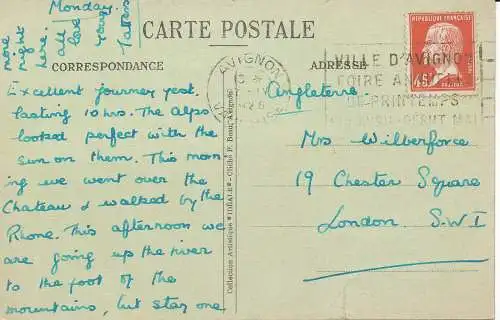 Monday.
more
night
here.
all
love
yours
CARTE POSTALE
CORRESPONDANCE
ADRESSE
Excellent journey yest.
lasting 10 hrs. The Alps
looked perfect with the
sun on them. This morn
ing we went over the
Chateau & walked by the
Rhone. This afternoon we
are going up the river
to the foot of the
mountains, but stay one
Collection Artistique "IDÉALE"
Avignon
AVIGNON
VILLE D'AVIGNON
FOIRE
DE PRINTEMPS
REPUBLIQUE FRANÇAISE
45c
POSTES
Angleterre
Mrs Wilberforce
19 Chester Square
London. S.W.1